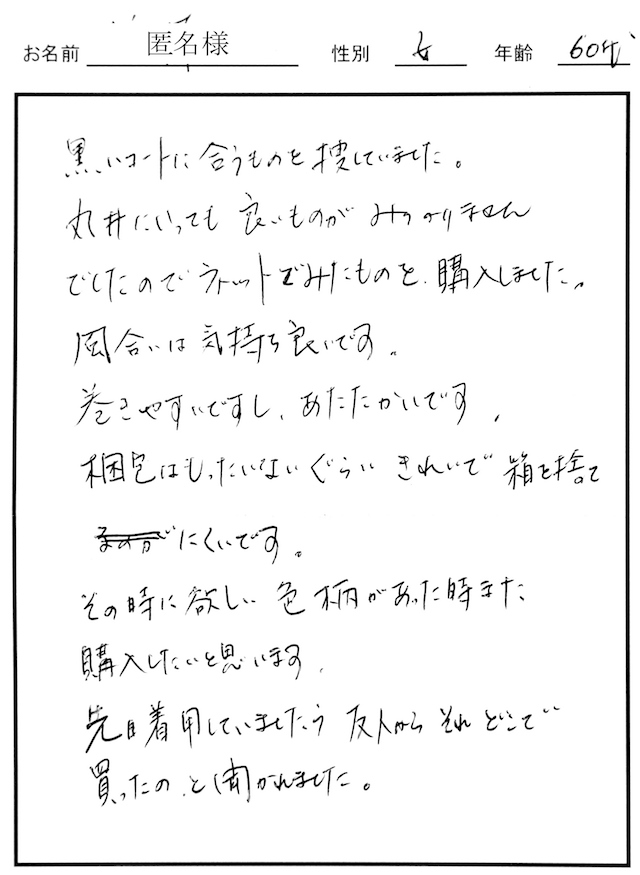 お名前 匿名様 性別 女 年齢 60代
黒いコートに合うものを捜していました。
丸井にいっても良いものがみつかりません
でしたのでネットでみたものを購入しました。
風合いは気持ち良いです。
巻きやすいですし、あたたかいです。
梱包はもったいないぐらいきれいで箱を捨て
にくいです。
その時に欲しい色柄があった時また
購入したいと思います。
先日着用していましたら友人からそれどこで
買ったのと聞かれました。